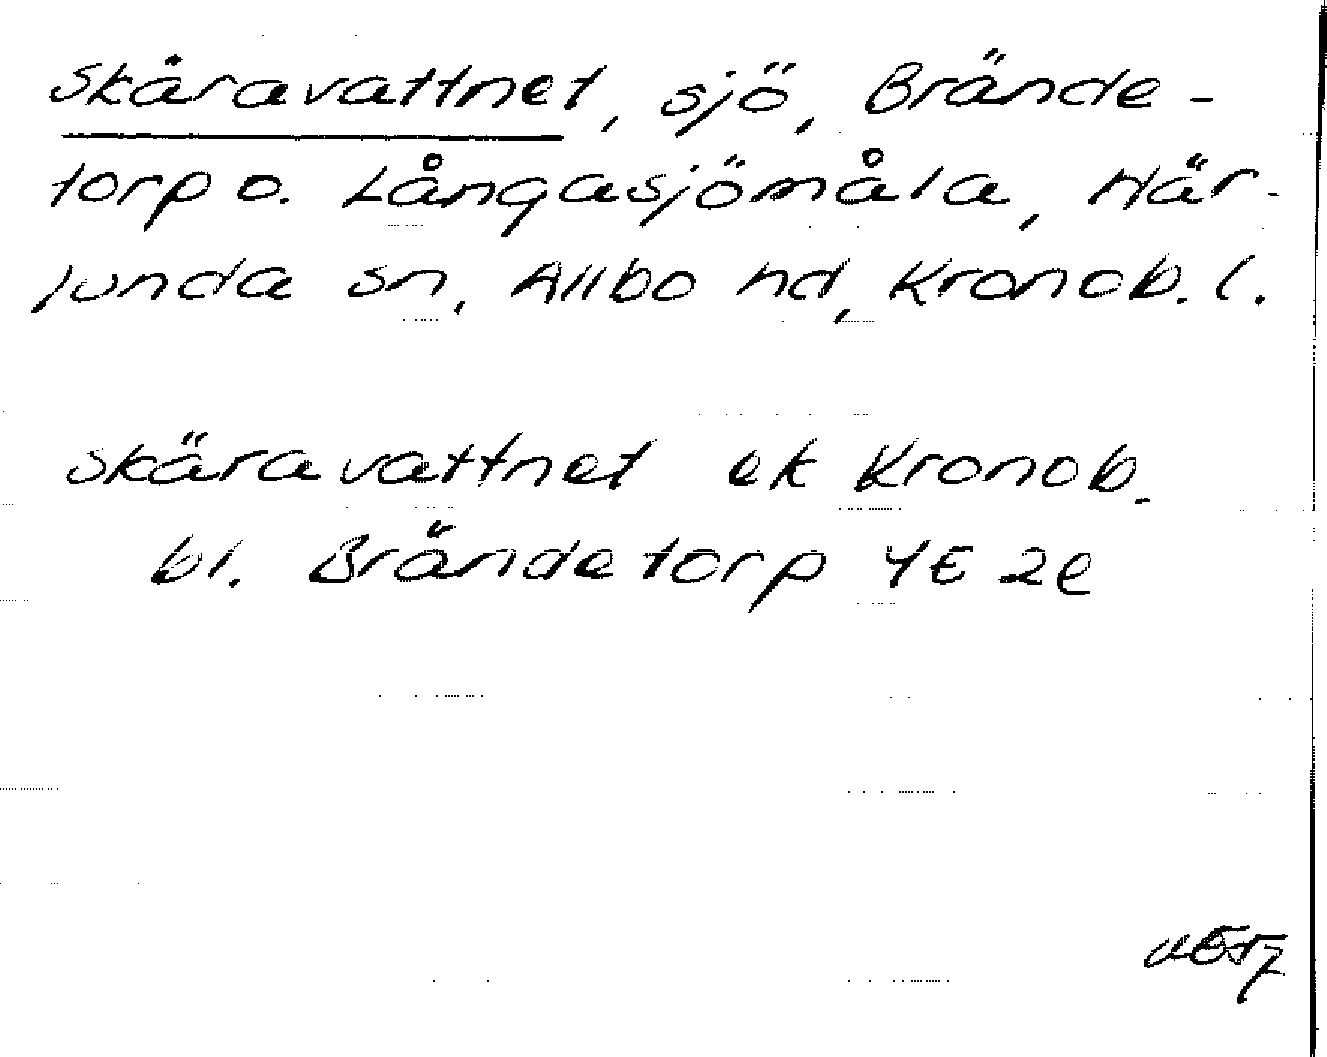 Skäravattnet, sjö, Brände-
torp o. Långasjömåla, Här-
lunda sn, Allbo hd, Kronob. l.
Skäravattnet ek Kronob.
bl. Brändetorp 4E 2e